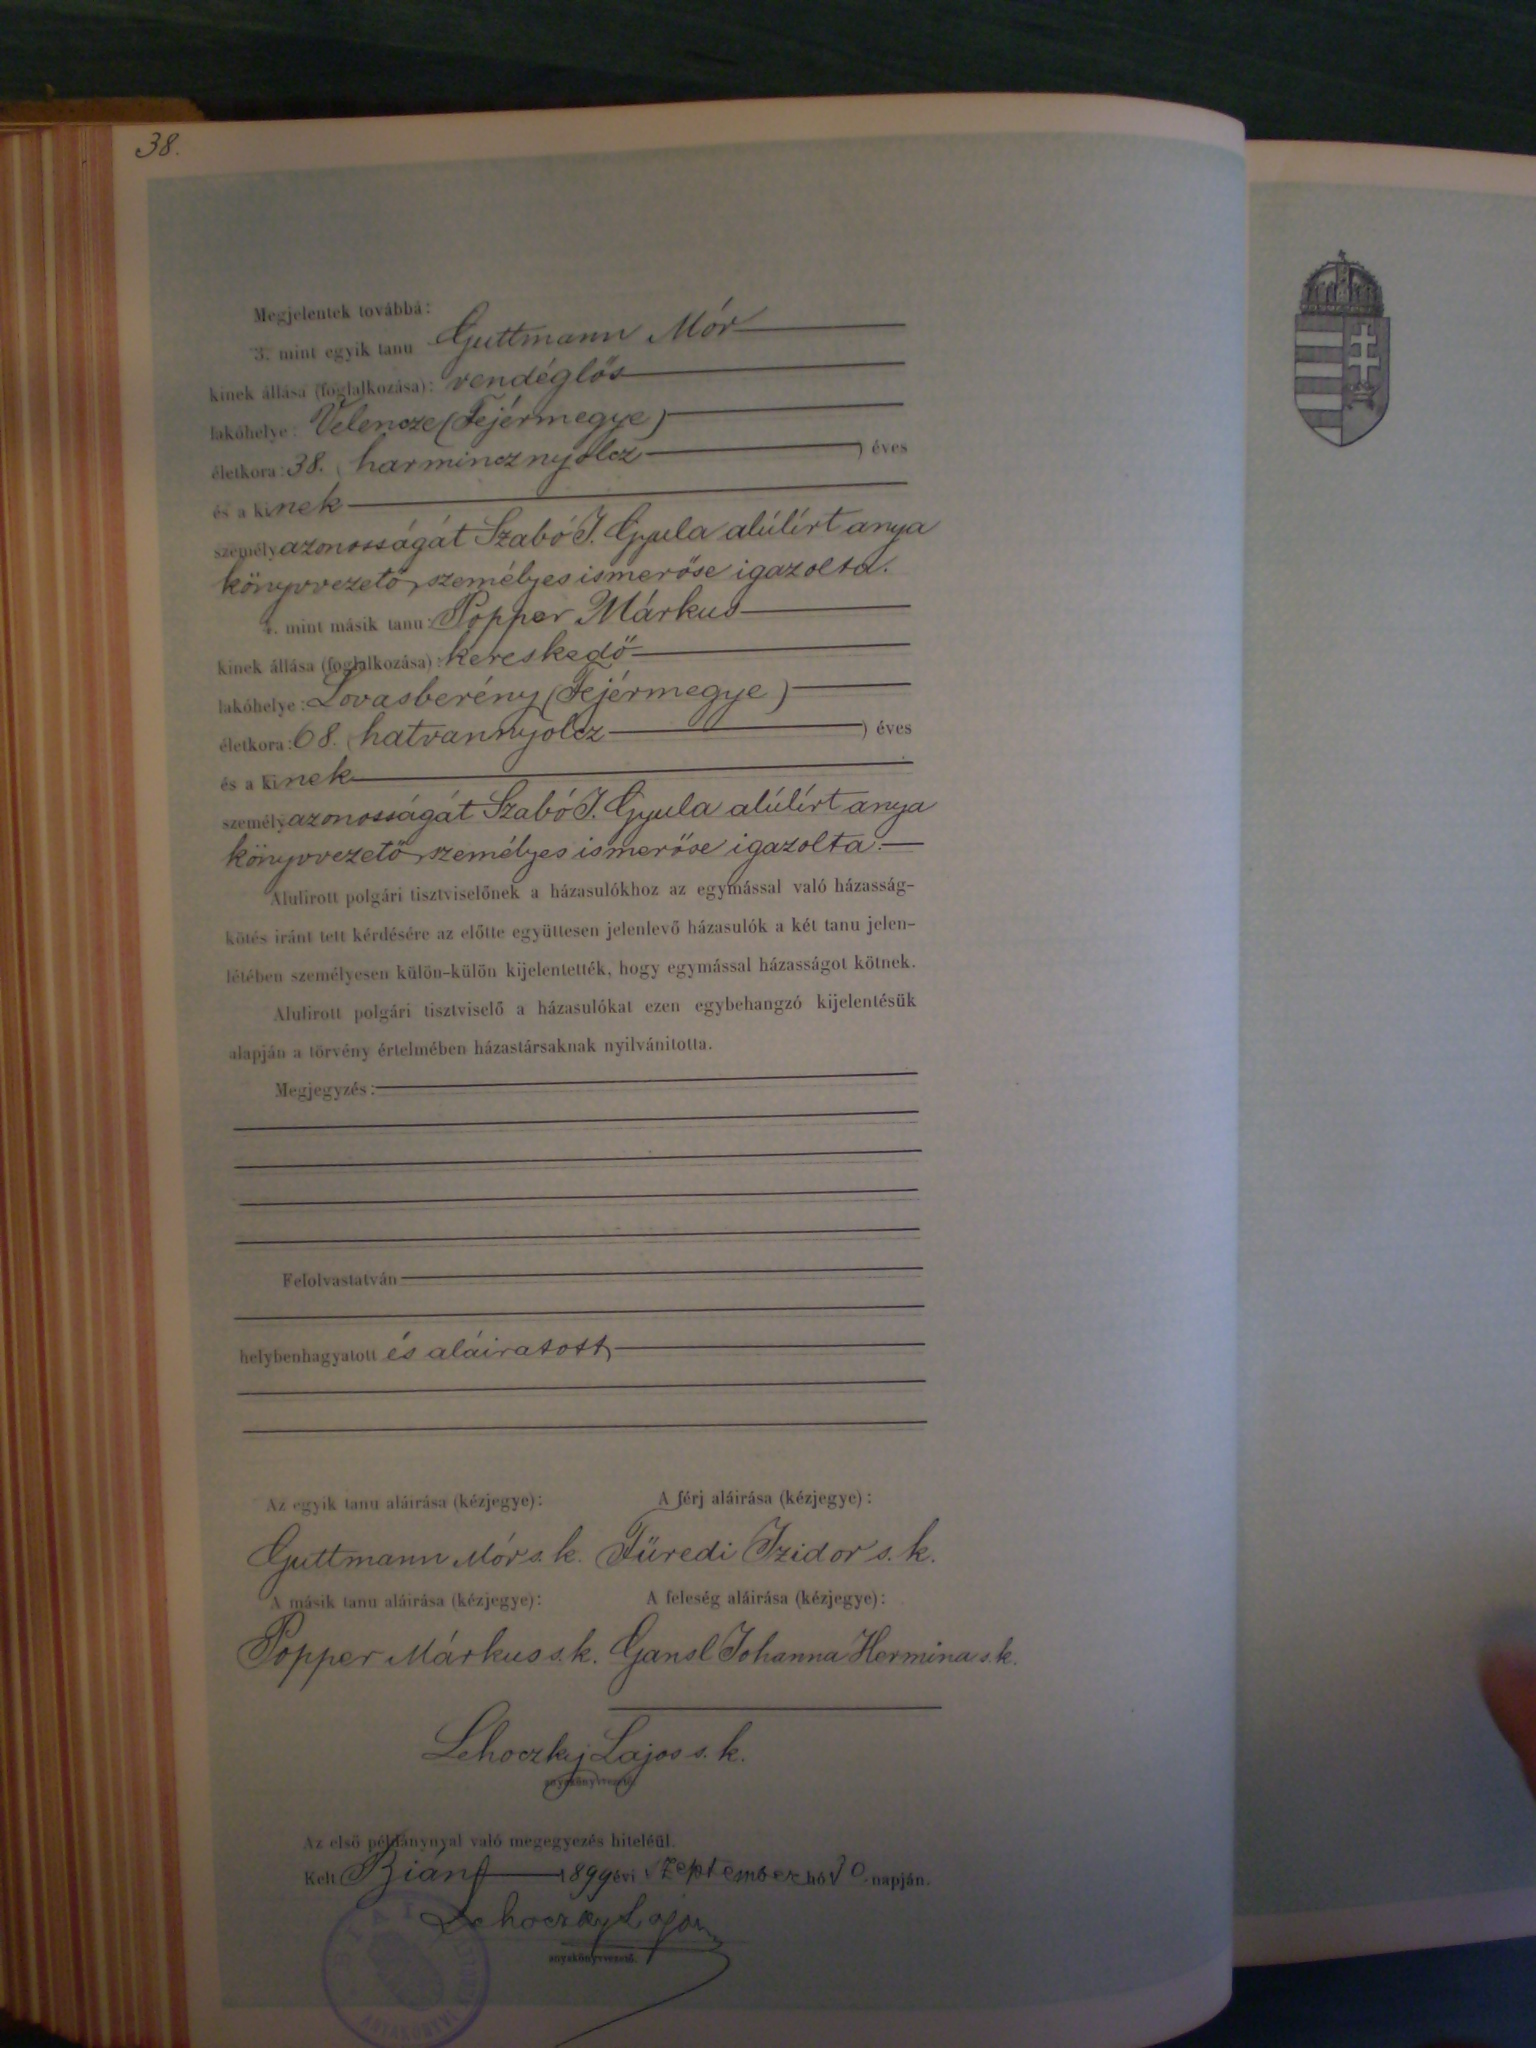 38.
Megjelentek továbbá:
3. mint egyik tanu Guttmann Mór
kinek állása (foglalkozása): vendéglős
lakóhelye: Velencze (Fejérmegye)
életkora: 38. (harmincznyolcz) éves
és a kinek
személyazonosságát Szabó J. Gyula alúlírt anya
könyvvezető személyes ismerőse igazolta.
4. mint másik tanu: Popper Márkus
kinek állása (foglalkozása): kereskedő
lakóhelye: Lovasberény (Fejérmegye)
életkora: 68. (hatvannyolcz) éves
és a kinek
személyazonosságát Szabó J. Gyula alúlírt anya
könyvvezető személyes ismerőse igazolta.
Alulirott polgári tisztviselőnek a házasulókhoz az egymással való házasság-
kötés iránt tett kérdésére az előtte együttesen jelenlevő házasulók a két tanu jelen-
létében személyesen külön-külön kijelentették, hogy egymással házasságot kötnek.
Alulirott polgári tisztviselő a házasulókat ezen egybehangzó kijelentésük
alapján a törvény értelmében házastársaknak nyilvánitotta.
Megjegyzés:
Felolvastatván
helybenhagyatott és aláiratott,
Az egyik tanu aláirása (kézjegye): A férj aláirása (kézjegye):
Guttmann Mór s. k. Füredi Izidor s. k.
A másik tanu aláirása (kézjegye): A feleség aláirása (kézjegye):
Popper Márkus s. k. Gansl Johanna Hermina s. k.
Lehoczky Lajos s. k.
anyakönyvvezető.
Az első példánynyal való megegyezés hiteléül.
Kelt Bián 1899 évi szeptember hó 30 napján.
Lehoczky Lajos
anyakönyvvezető.